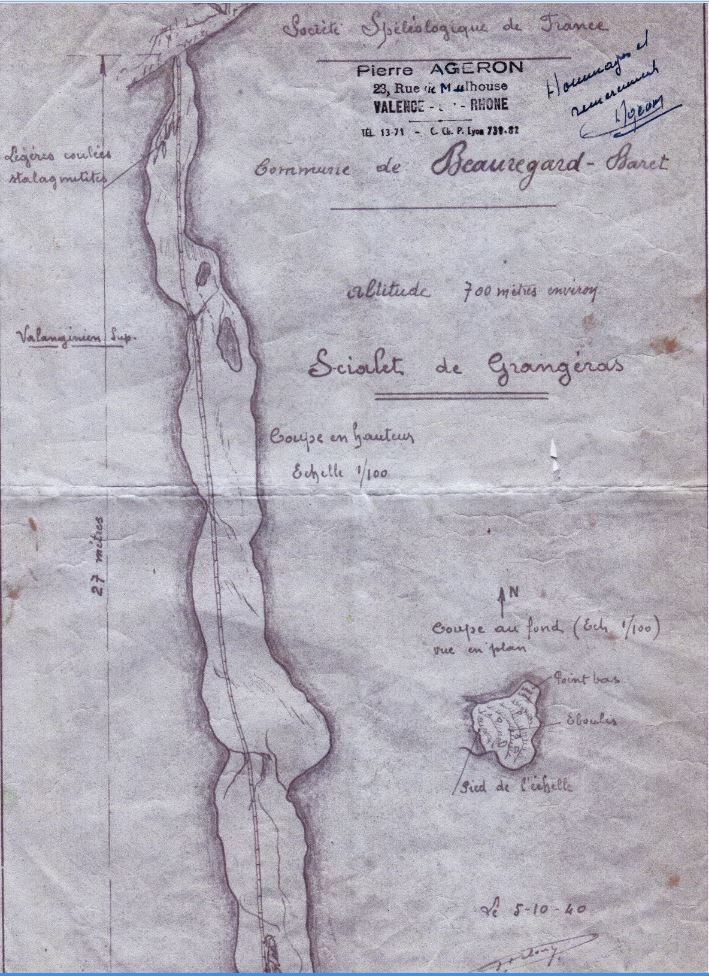 Société Spéléologique de France
Pierre AGERON
23, Rue de Mulhouse
VALENCE - RHONE
TÉL. 13-71 - C. Ch. P. Lyon 739-82
Hommages et
remerciement
Ageron
Commune de Beauregard-Baret
Altitude 700 mètres environ
Scialet de Grangéras
Coupe en hauteur
Echelle 1/100
Légères coulées
stalagmitites
Valanginien Sup.
27 mètres
N
Coupe au fond (Ech 1/100)
vue en plan
Point bas
Eboulis
Pied de l'échelle
Le 5-10-40